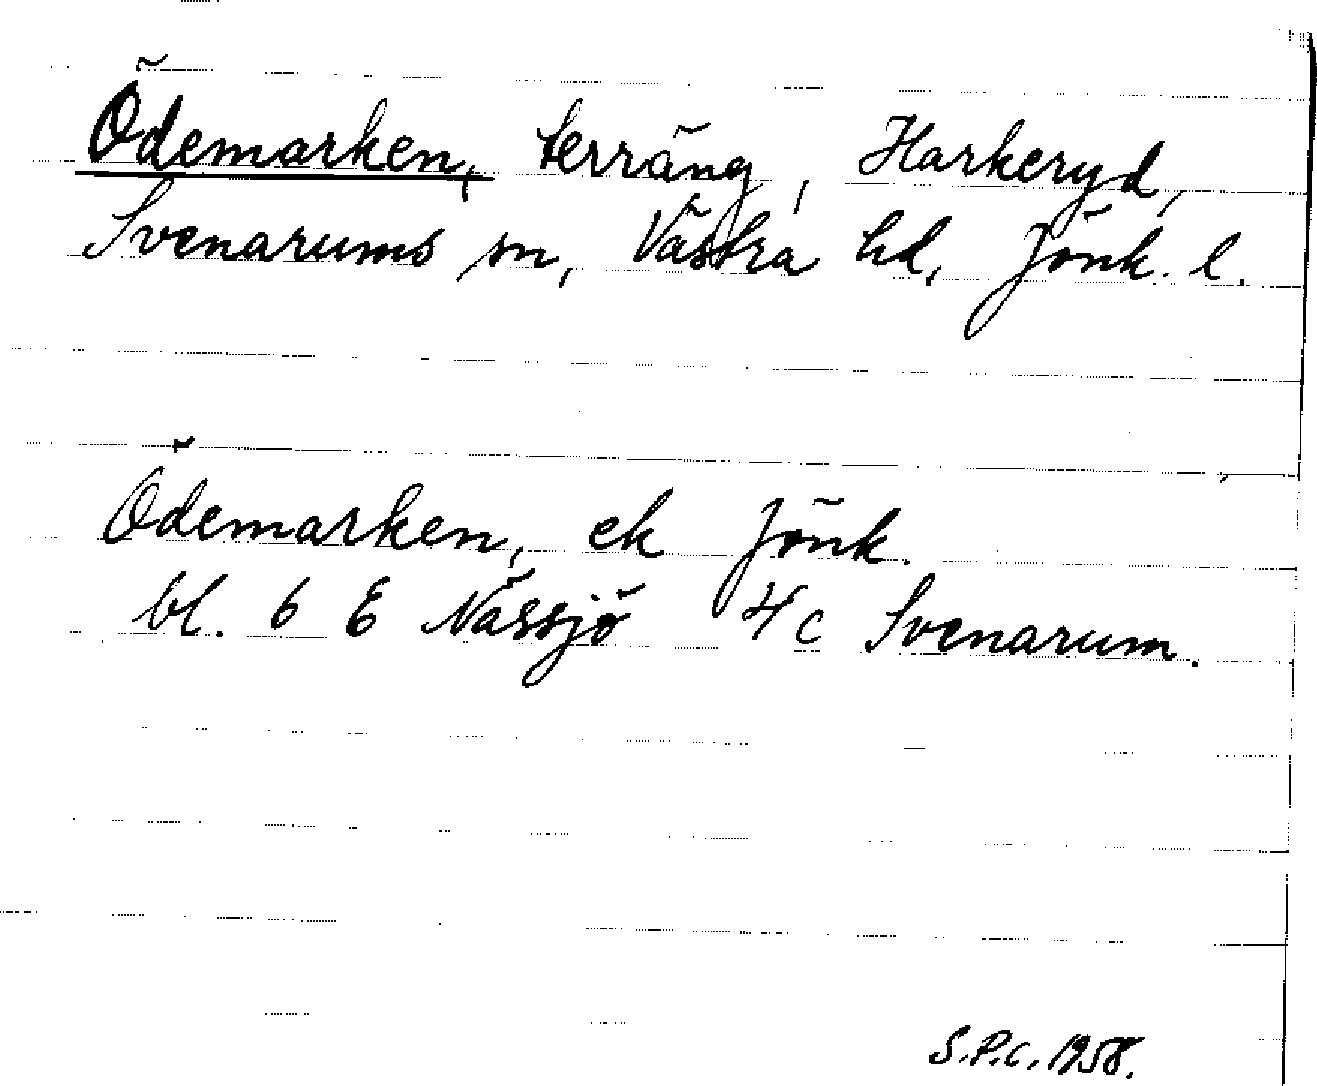 Ödemarken, terräng, Harkeryd,
Svenarums sn, Västra hd, Jönk. l.
Ödemarken, ek Jönk.
bl. 6 E Nässjö 4c Svenarum.
S.P.C. 1958.